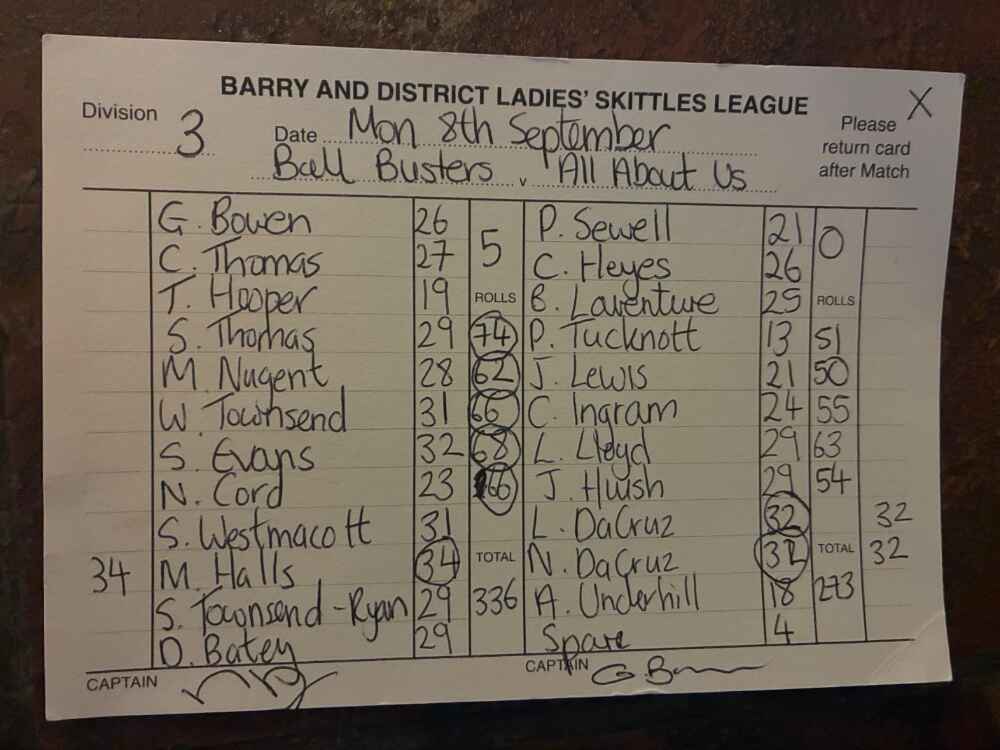 BARRY AND DISTRICT LADIES' SKITTLES LEAGUE X
Division 3 Date Mon 8th September Please return card after Match
Ball Busters v All About Us
G. Bowen 26 5 P. Sewell 21 0
C. Thomas 27 C. Heyes 26
T. Hooper 19 ROLLS B. Laventure 25 ROLLS
S. Thomas 29 74 P. Tucknott 13 51
M. Nugent 28 62 J. Lewis 21 50
W. Townsend 31 66 C. Ingram 24 55
S. Evans 32 68 L. Lloyd 29 63
N. Cord 23 66 J. Huish 29 54
S. Westmacott 31 L. DaCruz 32 32
34 M. Halls 34 TOTAL N. DaCruz 32 TOTAL 32
S. Townsend-Ryan 29 336 A. Underhill 18 273
D. Batey 29 Spare 4
CAPTAIN CAPTAIN